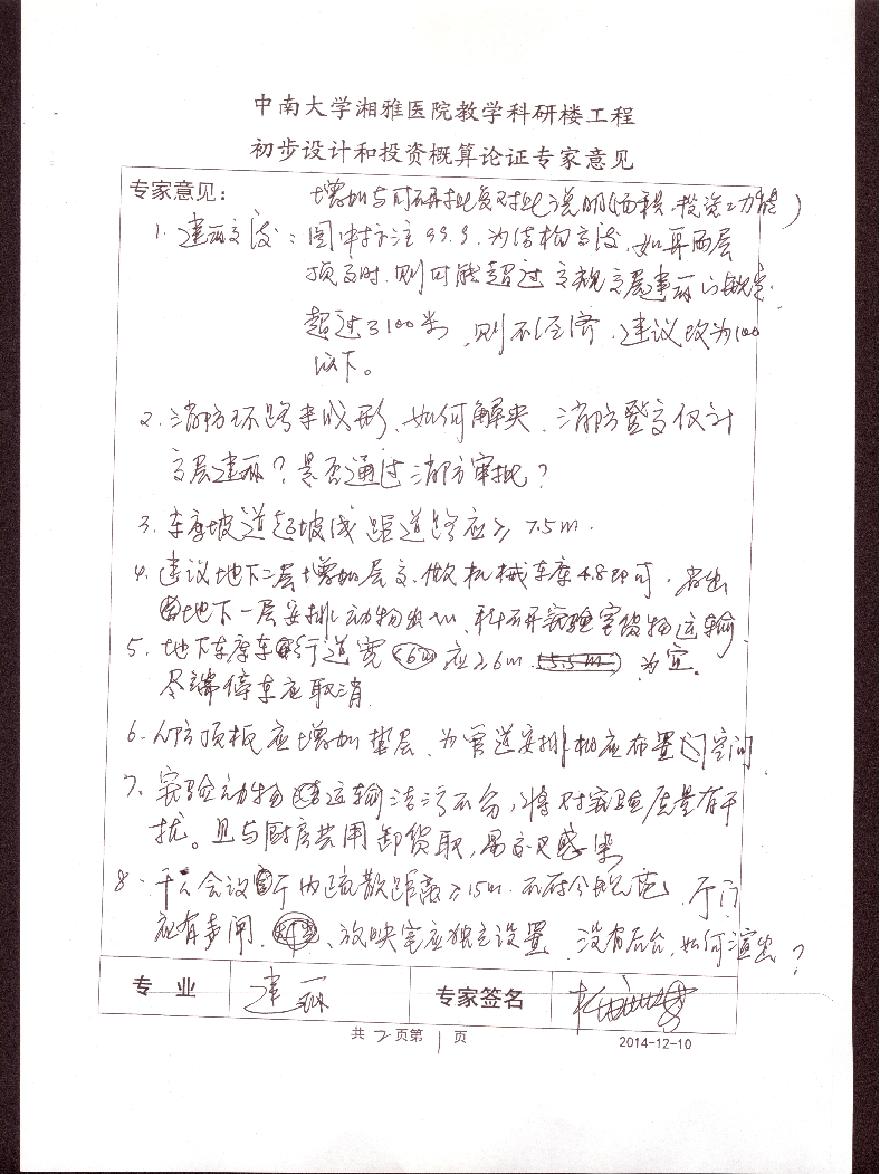 中南大学湘雅医院教学科研楼工程
初步设计和投资概算论证专家意见
专家意见：
增加与可研批复对比说明(面积、投资、功能)
1. 建筑高度：图中标注99.9，为结构高度，如算面层
顶高时，则可能超过高规高层建筑的规定
超过了100米，则不经济，建议改为100
以下。
2. 消防环路未成形，如何解决，消防登高仅计
高层建筑？是否通过消防审批？
3. 车库坡道起坡线距道路应≥7.5m.
4. 建议地下二层增加层高，做机械车库4.8即可，省出
地下一层安排动物出入，科研实验室货物运输
5. 地下车库车行道宽 应≥6m 为宜.
尽端停车应取消
6. 人防顶板应增加垫层，为管道安排 布置门空间
7. 实验动物 运输洁污不分，将对实验质量有干
扰。且与厨房共用卸货 ，易交叉感染
8. 千人会议厅内疏散距离≥15m 不符合规范，厅门
应有声闸、放映室应独立设置，没有后台，如何演出？
专 业 建筑 专家签名
共 2 页第 1 页 2014-12-10